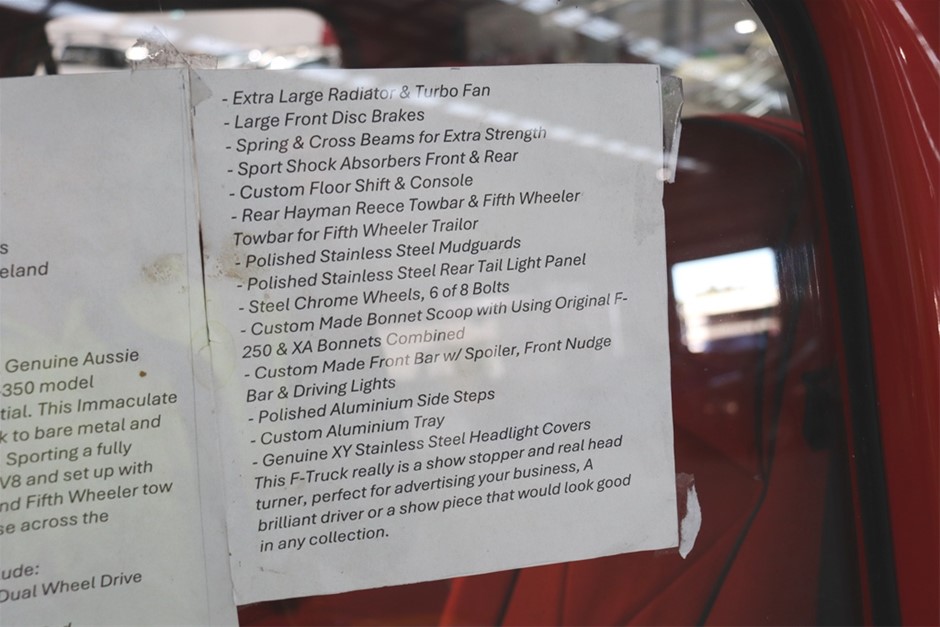 s
eland
Genuine Aussie
-350 model
tial. This Immaculate
k to bare metal and
Sporting a fully
V8 and set up with
nd Fifth Wheeler tow
se across the
ude:
Dual Wheel Drive
- Extra Large Radiator & Turbo Fan
- Large Front Disc Brakes
- Spring & Cross Beams for Extra Strength
- Sport Shock Absorbers Front & Rear
- Custom Floor Shift & Console
- Rear Hayman Reece Towbar & Fifth Wheeler
Towbar for Fifth Wheeler Trailor
- Polished Stainless Steel Mudguards
- Polished Stainless Steel Rear Tail Light Panel
- Steel Chrome Wheels, 6 of 8 Bolts
- Custom Made Bonnet Scoop with Using Original F-
250 & XA Bonnets Combined
- Custom Made Front Bar w/ Spoiler, Front Nudge
Bar & Driving Lights
- Polished Aluminium Side Steps
- Custom Aluminium Tray
- Genuine XY Stainless Steel Headlight Covers
This F-Truck really is a show stopper and real head
turner, perfect for advertising your business, A
brilliant driver or a show piece that would look good
in any collection.